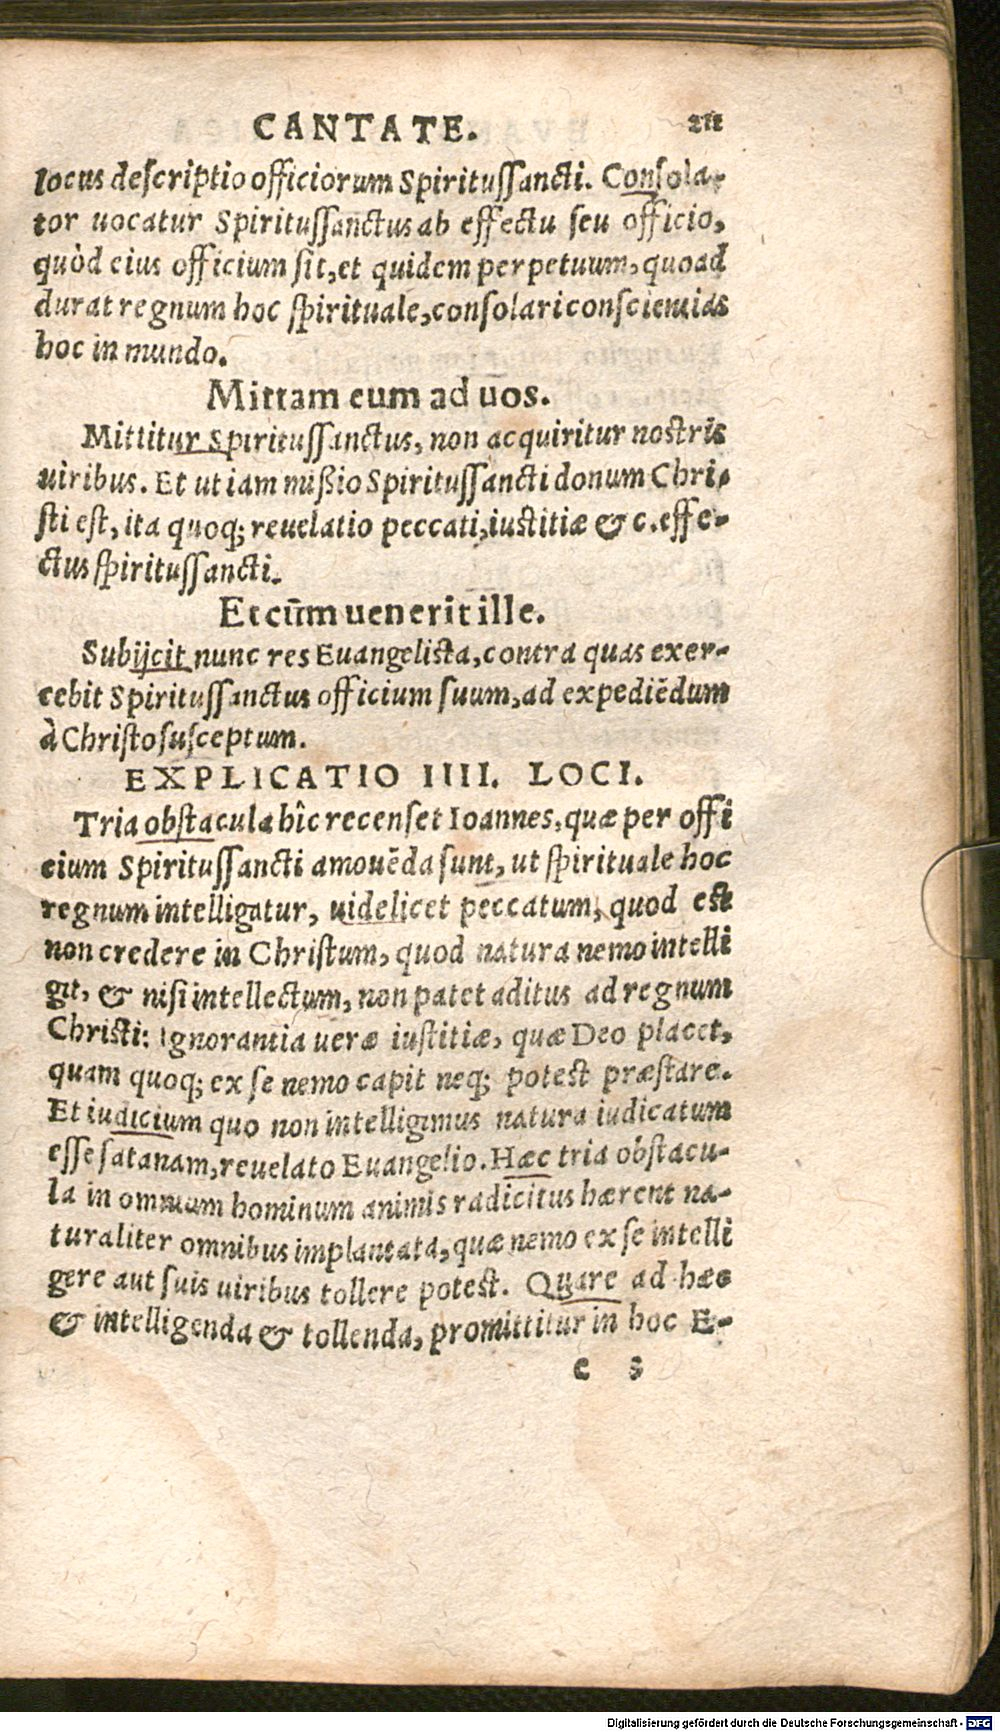 CANTATE. 211
locus descriptio officiorum Spiritussancti. Consola-
tor uocatur Spiritussanctus ab effectu seu officio,
quòd eius officium sit, et quidem perpetuum, quoad
durat regnum hoc spirituale, consolari conscientias
hoc in mundo.
Mittam eum ad uos.
Mittitur Spiritussanctus, non acquiritur nostris
uiribus. Et ut iam mißio Spiritussancti donum Chri-
sti est, ita quoq; reuelatio peccati, iustitiæ & c. effe-
ctus spiritussancti.
Et cūm uenerit ille.
Subijcit nunc res Euangelista, contra quas exer-
cebit Spiritussanctus officium suum, ad expediēdum
à Christo susceptum.
EXPLICATIO IIII. LOCI.
Tria obstacula hîc recenset Ioannes, quæ per offi
cium Spiritussancti amouēda sunt, ut spirituale hoc
regnum intelligatur, uidelicet peccatum, quod est
non credere in Christum, quod natura nemo intelli
git, & nisi intellectum, non patet aditus ad regnum
Christi: Ignorantia ueræ iustitiæ, quæ Deo placet,
quam quoq; ex se nemo capit neq; potest præstare.
Et iudicium quo non intelligimus natura iudicatum
esse satanam, reuelato Euangelio. Hæc tria obstacu-
la in omnium hominum animis radicitus hærent na-
turaliter omnibus implantata, quæ nemo ex se intelli
gere aut suis uiribus tollere potest. Quare ad hæc
& intelligenda & tollenda, promittitur in hoc E-
c s
Digitalisierung gefördert durch die Deutsche Forschungsgemeinschaft - DFG